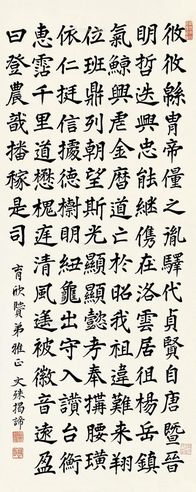 攸攸緜胄帝僮之胤驛代貞賢自唐暨晉
明哲迭興忠能繼儁在洛雲居徂楊岳鎮
氣鯨興虐金曆道亡我昭我祖違難來翔
位班鼎列朝望斯光顯顯懿考奉搆腰璜
依仁挺信據德樹明紐龜出守入讚台衡
惠霑千里道懋槐庭清風遙被徽音遠盈
曰登農哉播稼是司
育欣賢弟雅正 文殊揭諦